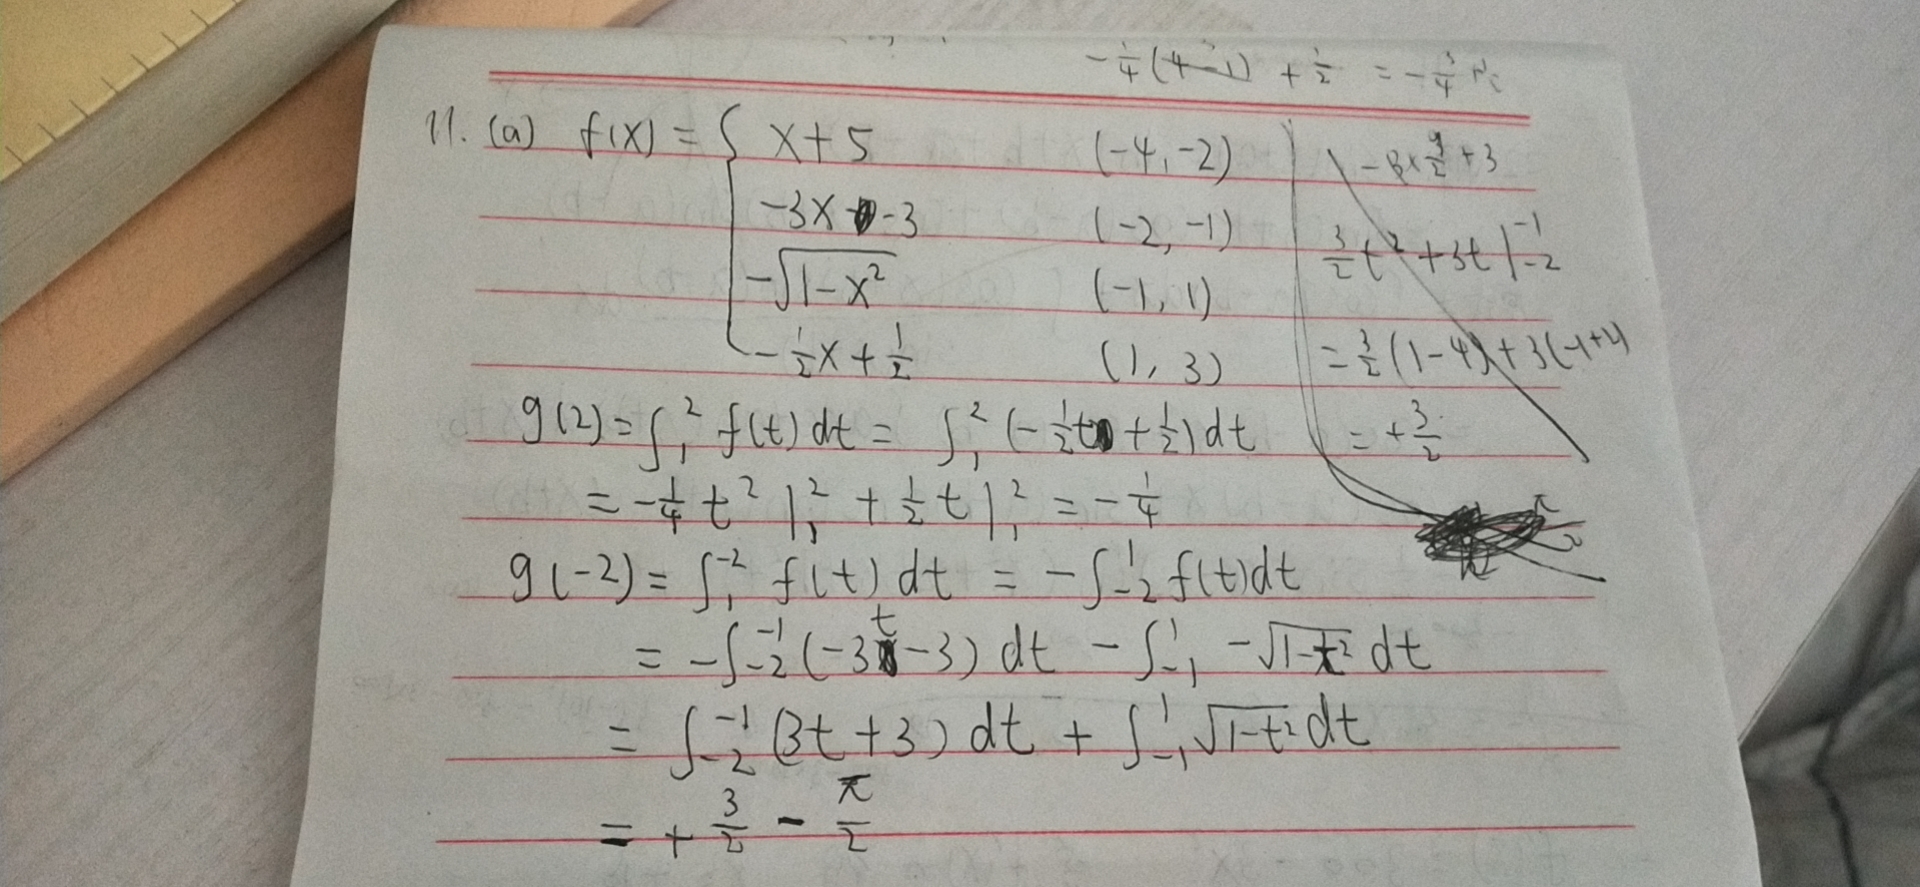 -1/4 (4-1) + 1/2 = -3/4
11. (a) f(x) = { x+5 (-4, -2)
-3x -3 (-2, -1)
-√(1-x²) (-1, 1)
-1/2 x + 1/2 (1, 3)
-3×9/2+3
3/2 t² + 3t |₋₂⁻¹
= 3/2 (1-4) + 3(-1+2)
= +3/2
g(2) = ∫₁² f(t) dt = ∫₁² (-1/2 t + 1/2) dt
= -1/4 t² |₁² + 1/2 t |₁² = -1/4
g(-2) = ∫₁⁻² f(t) dt = -∫₋₂¹ f(t) dt
= -∫₋₂⁻¹ (-3t-3) dt - ∫₋₁¹ -√(1-t²) dt
= ∫₋₂⁻¹ (3t+3) dt + ∫₋₁¹ √(1-t²) dt
= + 3/2 - π/2